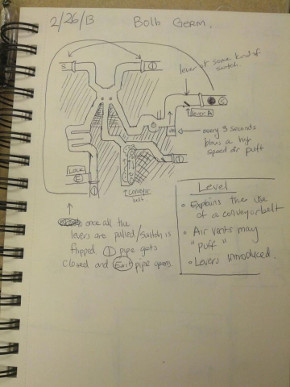 2/26/13
Bolb Germ.
lever of some kind of
switch.
every 3 seconds
blows a high
speed air puff
once all the
levers are pulled/switch is
flipped. ① pipe gets
closed and Exit pipe opens
Level
• Explains the use
of a conveyor belt
• Air vents may
"puff"
• Levers introduced.